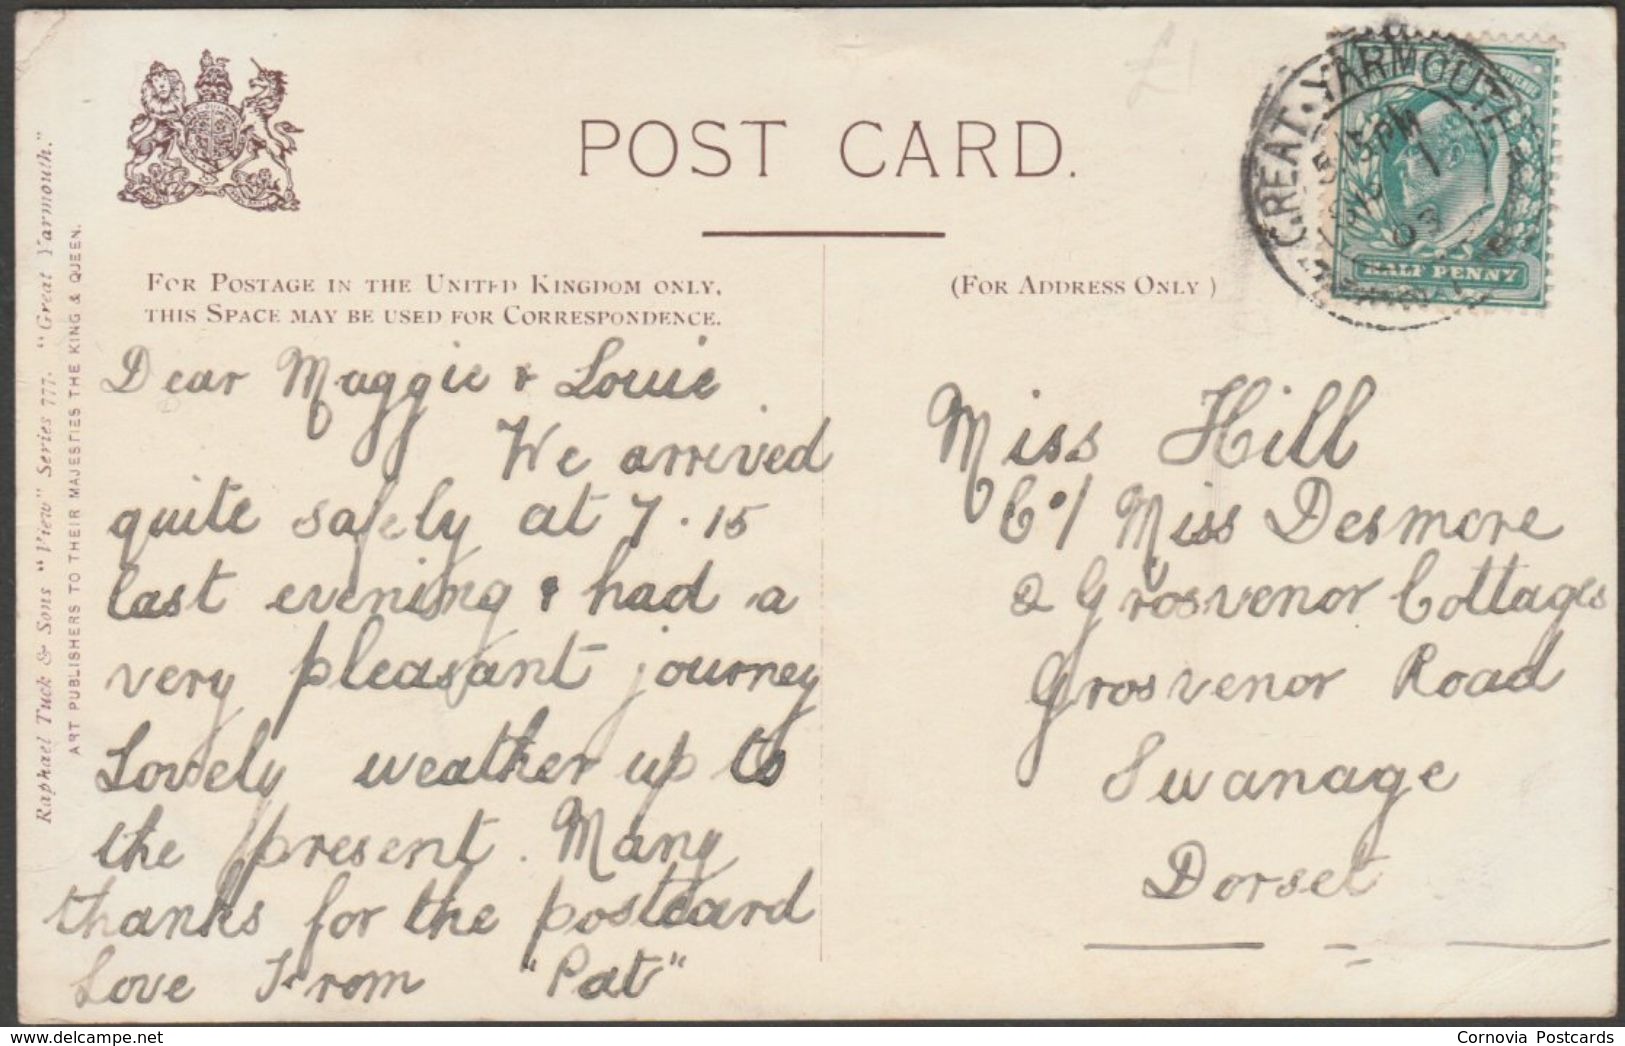 POST CARD.
FOR POSTAGE IN THE UNITED KINGDOM ONLY,
THIS SPACE MAY BE USED FOR CORRESPONDENCE.
(FOR ADDRESS ONLY)
Raphael Tuck & Sons "View" Series 777. "Great Yarmouth."
ART PUBLISHERS TO THEIR MAJESTIES THE KING & QUEEN.
£1
GREAT · YARMOUTH
HALF PENNY
Dear Maggie & Louie
We arrived
quite safely at 7.15
last evening & had a
very pleasant journey
Lovely weather up to
the present. Many
thanks for the postcard
Love From "Pat"
Miss Hill
C°/ Miss Desmore
2 Grosvenor Cottages
Grosvenor Road
Swanage
Dorset
Cornovia Postcards